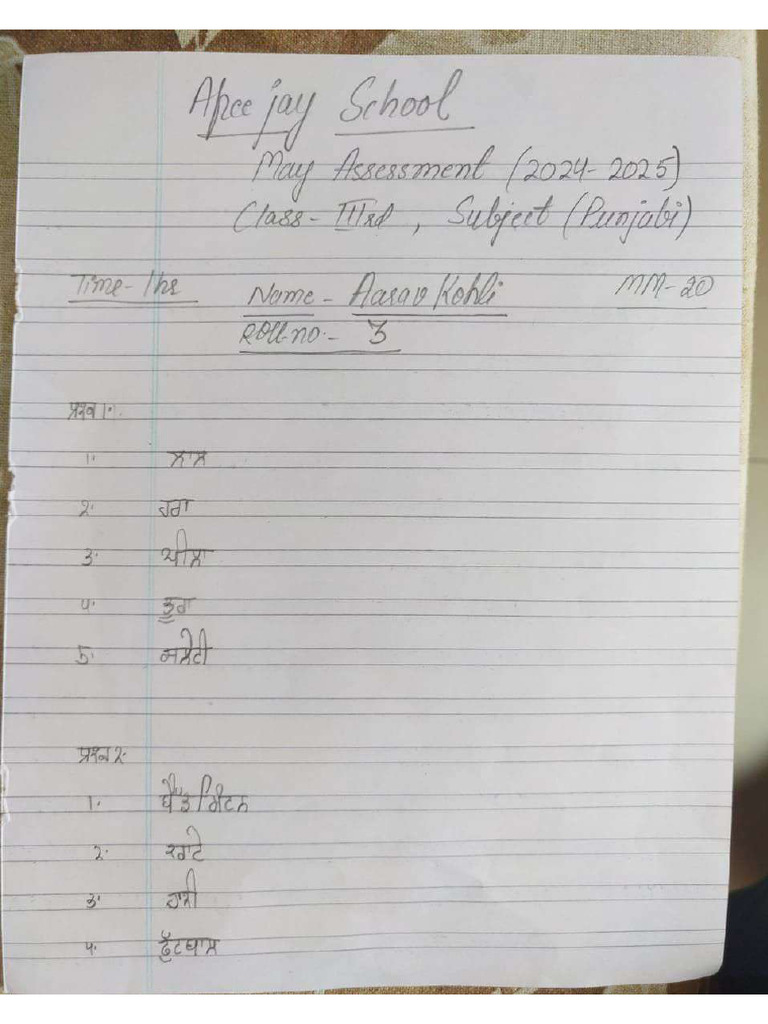 Apeejay School
May Assessment (2024-2025)
Class - IIIrd , Subject (Punjabi)
Time - 1hr Name - Aarav Kohli MM - 20
Roll-no. - 3
ਪ੍ਰਸ਼ਨ 1.
1. ਲਾਲ
2. ਹਰਾ
3. ਪੀਲਾ
4. ਭੂਰਾ
5. ਸਲੇਟੀ
ਪ੍ਰਸ਼ਨ 2.
1. ਬੈਡਮਿੰਟਨ
2. ਕਰਾਟੇ
3. ਹਾਕੀ
4. ਫੁੱਟਬਾਲ